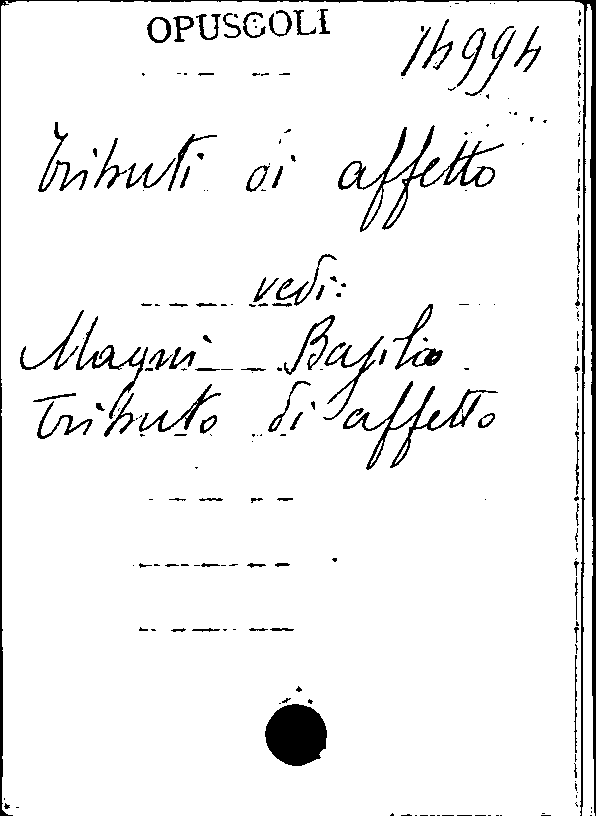 OPUSCOLI
14994
Tributi di affetto
vedi:
Magni Basilio
Tributo di affetto